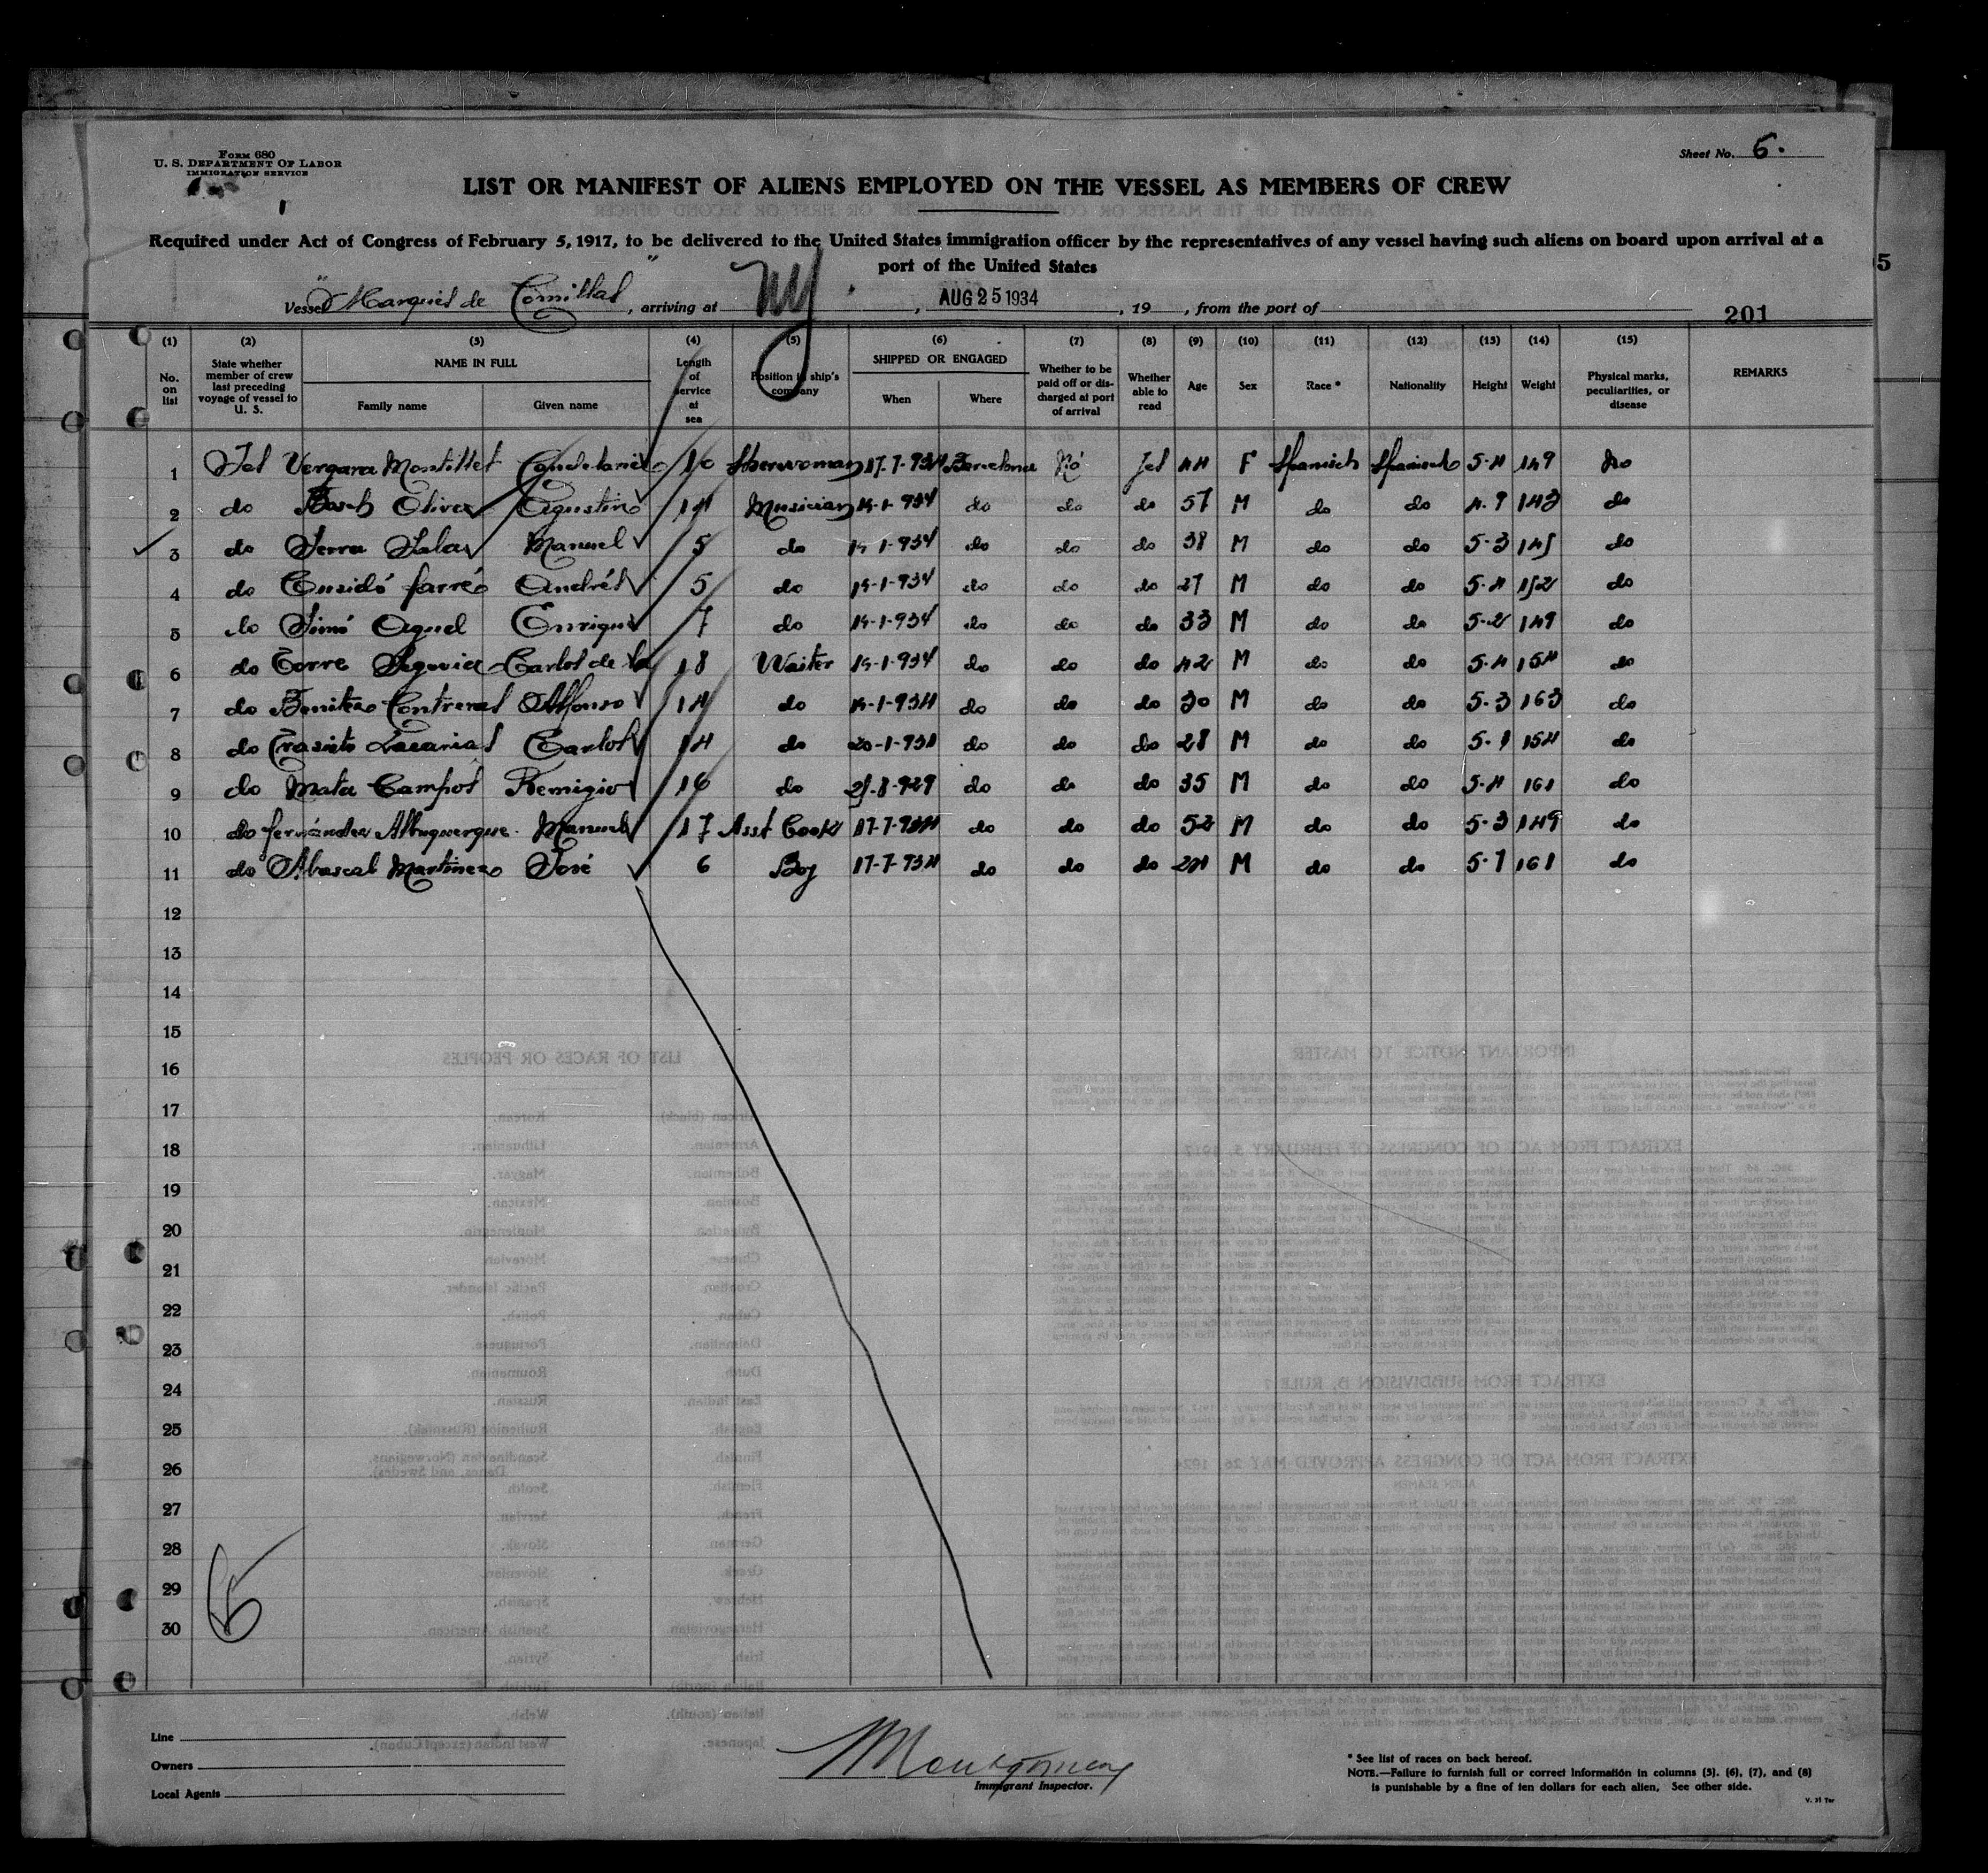 FORM 680
U. S. DEPARTMENT OF LABOR
IMMIGRATION SERVICE
Sheet No. 6.
LIST OR MANIFEST OF ALIENS EMPLOYED ON THE VESSEL AS MEMBERS OF CREW
Required under Act of Congress of February 5, 1917, to be delivered to the United States immigration officer by the representatives of any vessel having such aliens on board upon arrival at a
port of the United States
Vessel "Marqués de Comillas", arriving at NY, AUG 25 1934, 19, from the port of
201
5
(1) No. on list
(2) State whether member of crew last preceding voyage of vessel to U. S.
(3) NAME IN FULL Family name Given name
(4) Length of service at sea
(5) Position in ship's company
(6) SHIPPED OR ENGAGED When Where
(7) Whether to be paid off or discharged at port of arrival
(8) Whether able to read
(9) Age
(10) Sex
(11) Race *
(12) Nationality
(13) Height
(14) Weight
(15) Physical marks, peculiarities, or disease
REMARKS
1 Yes Vergara Montillet 10 17-7-934 Barcelona No Yes 44 F Spanish Spanish 5-4 149 No
2 do Bosch Oliver Agustin 14 Musician 19-1-934 do do do 57 M do do 4-9 143 do
3 do Serra Sala Manuel 5 do 19-1-934 do do do 38 M do do 5-3 145 do
4 do Cusidó Farré Andrés 5 do 19-1-934 do do do 27 M do do 5-4 152 do
5 do Simó Enrique 7 do 19-1-934 do do do 33 M do do 5-2 149 do
6 do Torre Segovia Carlos de la 18 Waiter 19-1-934 do do do 42 M do do 5-4 154 do
7 do Benitez Contreras Alfonso 14 do 19-1-934 do do do 30 M do do 5-3 163 do
8 do Carlos 14 do 20-1-934 do do do 28 M do do 5-1 154 do
9 do Mata Campos Remigio 16 do 25-8-929 do do do 35 M do do 5-4 161 do
10 do Fernández Albuquerque Manuel 17 Asst Cook 17-7-934 do do do 52 M do do 5-3 149 do
11 do Abascal Martinez José 6 Boy 17-7-934 do do do 24 M do do 5-7 161 do
12
13
14
15
16
17
18
19
20
21
22
23
24
25
26
27
28
29
30
Line
Owners
Local Agents
Montgomery
Immigrant Inspector.
* See list of races on back hereof.
NOTE.—Failure to furnish full or correct information in columns (3), (6), (7), and (8)
is punishable by a fine of ten dollars for each alien. See other side.